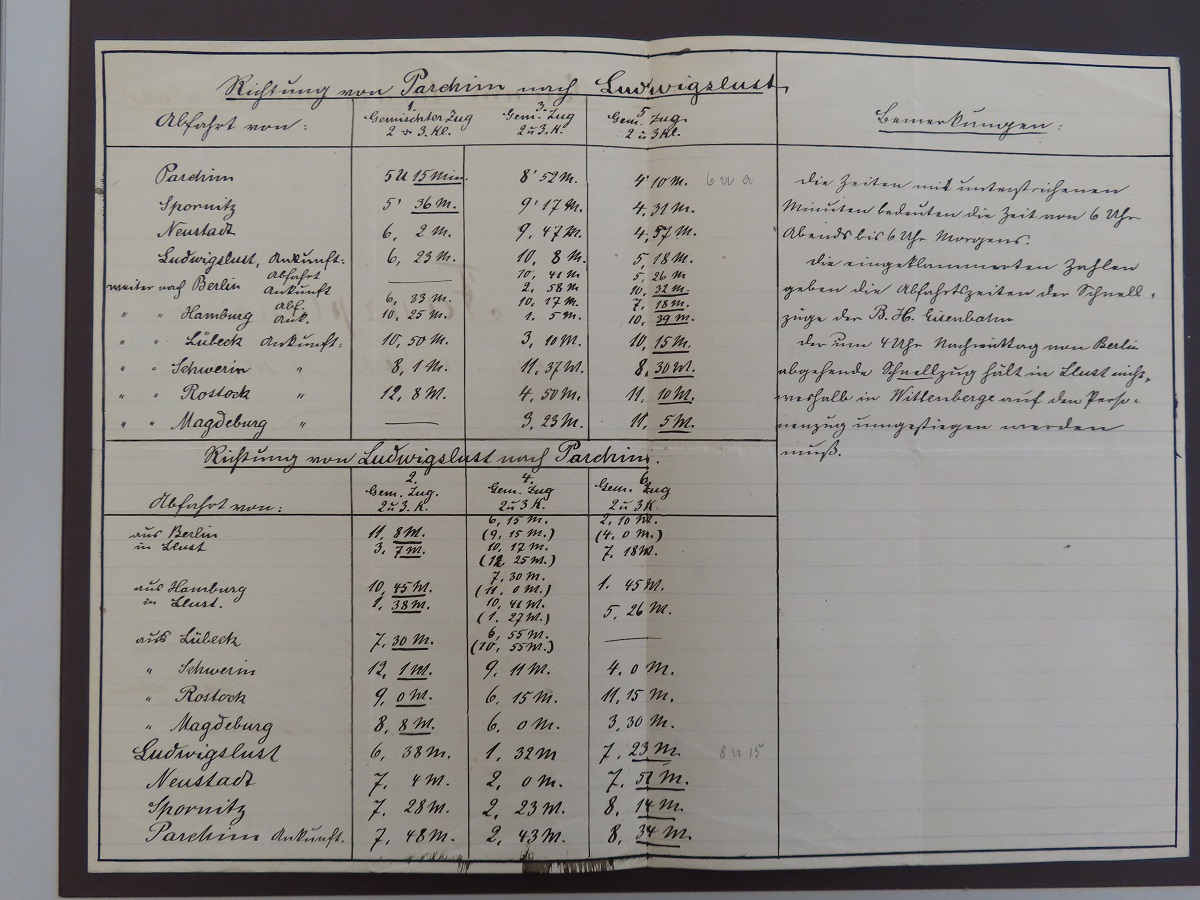 Richtung von Parchim nach Ludwigslust.
Abfahrt von: 1. Gemischter Zug 2 u 3. Kl. 3. Gem. Zug 2 u 3. K. 5. Gem. Zug. 2 u 3 Kl. Bemerkungen:
Parchim 5 U 15 Min. 8' 52 M. 4' 10 M. 6
Spornitz 5' 36 M. 9' 17 M. 4, 31 M.
Neustadt 6, 2 M. 9, 47 M. 4, 57 M.
Ludwigslust, Ankunft: 6, 23 M. 10, 8 M. 5, 18 M.
weiter nach Berlin Abfahrt —— 10, 41 M 5, 26 M
Ankunft 2, 58 M 10, 32 M.
" " Hamburg Abf. 6, 33 M. 10, 17 M. 7, 18 M.
Ank. 10, 25 M. 1, 5 M. 10, 39 M.
" " Lübeck Ankunft: 10, 50 M. 3, 10 M. 10, 15 M.
" " Schwerin " 8, 1 M. 11, 37 M. 8, 30 M.
" " Rostock " 12, 8 M. 4, 50 M. 11, 10 M.
" " Magdeburg " —— 3, 23 M. 11, 5 M.
die Zeiten mit unterstrichenen
Minuten bedeuten die Zeit von 6 Uhr
Abends bis 6 Uhr Morgens.
die eingeklammerten Zahlen
geben die Abfahrtszeiten der Schnell-
züge der B. H. Eisenbahn
der um 4 Uhr Nachmittag von Berlin
abgehende Schnellzug hält in Llust nicht,
weshalb in Wittenberge auf den Perso-
nenzug umgestiegen werden
muß.
Richtung von Ludwigslust nach Parchim.
Abfahrt von: 2. Gem. Zug. 2 u 3. K. 4. Gem. Zug 2 u 3 K. 6. Gem. Zug 2 u 3 K.
aus Berlin 11, 8 M. 6, 15 M. (9, 15 M.) 2, 10 M. (4, 0 M.)
in Llust 3, 7 M. 10, 17 M. (12, 25 M.) 7, 18 M.
aus Hamburg 10, 45 M. 7, 30 M. (11, 0 M.) 1. 45 M.
in Llust. 1, 38 M. 10, 41 M. (1, 27 M.) 5, 26 M.
aus Lübeck 7, 30 M. 6, 55 M. (10, 55 M.) ——
" Schwerin 12, 1 M. 9, 11 M. 4, 0 M.
" Rostock 9, 0 M. 6, 15 M. 11, 15 M.
" Magdeburg 8, 8 M. 6, 0 M. 3, 30 M.
Ludwigslust 6, 38 M. 1, 32 M 7, 23 M. 8 15
Neustadt 7, 4 M. 2, 0 M. 7, 51 M.
Spornitz 7, 28 M. 2, 23 M. 8, 14 M.
Parchim Ankunft. 7, 48 M. 2, 43 M. 8, 34 M.